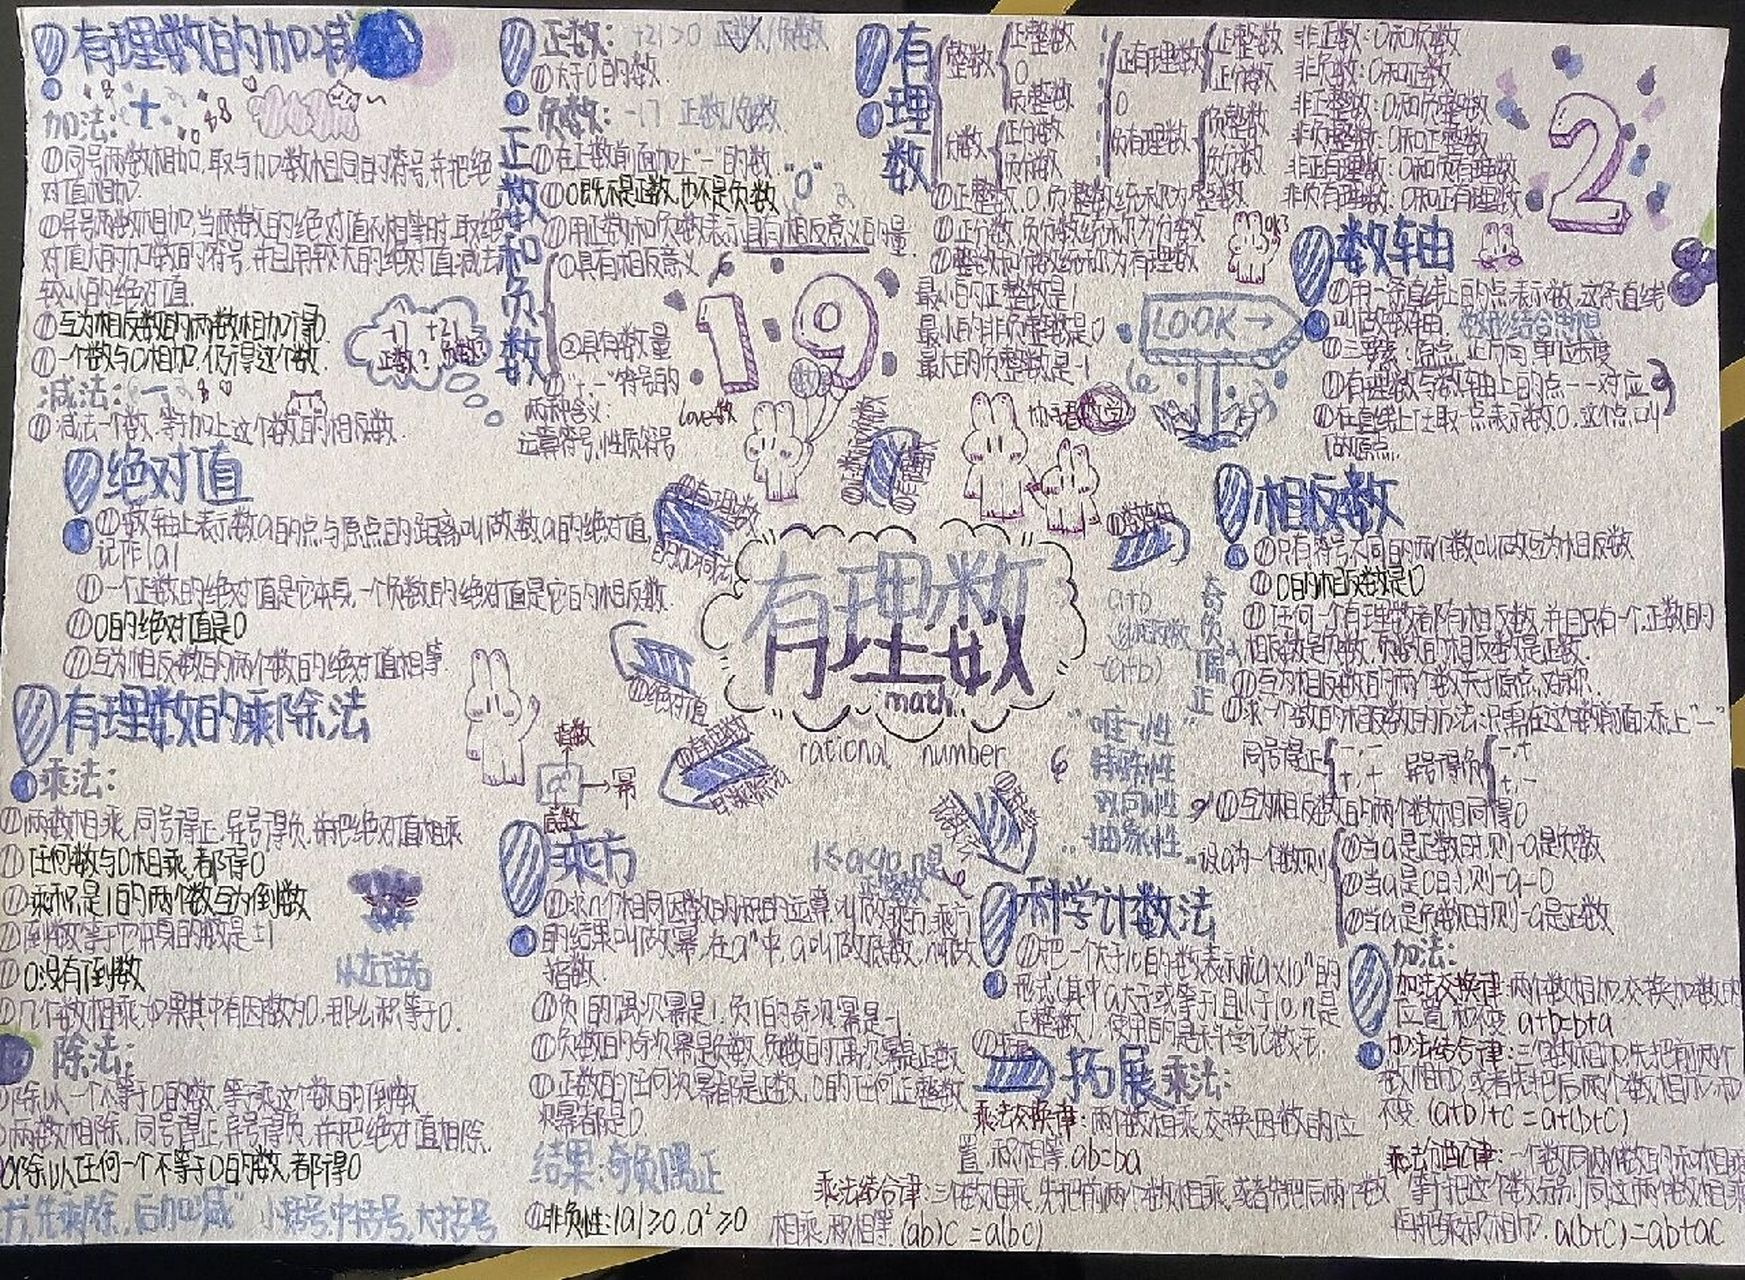 有理数的加减
加法：+
①同号两数相加，取与加数相同的符号，并把绝
对值相加.
①异号两数相加，当两数的绝对值不相等时，取绝
对值大的加数的符号，并且用较大的绝对值减去
较小的绝对值.
①互为相反数的两数相加得0
①一个数与0相加，仍得这个数.
-17 +21
正数？负数
减法：-
①减去一个数，等于加上这个数的相反数.
绝对值
①数轴上表示数a的点与原点的距离叫做数a的绝对值，
记作|a|
①一个正数的绝对值是它本身，一个负数的绝对值是它的相反数.
①0的绝对值是0
①互为相反数的两个数的绝对值相等.
有理数的乘除法
乘法：
①两数相乘，同号得正，异号得负，并把绝对值相乘
①任何数与0相乘，都得0
①乘积是1的两个数互为倒数
①倒数等于它本身的数是±1
①0没有倒数
①几个数相乘，如果其中有因数为0，那么积等于0.
从左至右
除法：
①除以一个不等于0的数，等于乘这个数的倒数
①两数相除，同号得正，异号得负，并把绝对值相除.
0除以任何一个不等于0的数，都得0
先乘除，后加减" 小括号，中括号，大括号
正数和负数
正数： +21>0 正数/负数
①大于0的数.
负数： -17 正数/负数
①在正数前面加上"-"的数 "0"
①0既不是正数，也不是负数
①用正数和负数表示具有相反意义的量.
①具有相反意义
②具有数量
①"+，-"符号的
两种含义：
运算符号，性质符号
19
love数
数
有理数
整数
正整数
0
负整数
分数
正分数
负分数
正有理数
正整数
正分数
0
负有理数
负整数
负分数
非正数：0和负数
非负数：0和正数
非正整数：0和负整数
非负整数：0和正整数
非正有理数：0和负有理数
非负有理数：0和正有理数
①正整数，0，负整数统称为整数
①正分数，负分数统称为分数
①整数和分数统称为有理数
最小的正整数是1
最小的非负整数是0
最大的负整数是-1
2
LOOK→
数轴
①用一条直线上的点表示数，这条直线
叫做数轴. 数形结合思想
①三要素：原点，正方向，单位长度
①有理数与数轴上的点一一对应
①在直线上任取一点表示数0，这个点叫
做原点.
有理数
有理数
math..
rational number
①绝对值
a+b
-(a+b)
奇负偶正
"唯一性"
特殊性
双向性
抽象性
相反数
①只有符号不同的两个数叫做互为相反数
①0的相反数是0
①任何一个有理数都有相反数，并且只有一个.正数的
相反数是负数，负数的相反数是正数.
①互为相反数的两个数关于原点对称.
①求一个数的相反数的方法：只需在这个数前面添上"-"
同号得正 -，- +，+ 异号得负 -，+ +，-
①互为相反数的两个数相同得0
设a为一个数则
①当a是正数时，则-a是负数
①当a是0时，则-a=0
①当a是负数时，则-a是正数
指数
a → 幂
底数
乘方
①求n个相同因数的积的运算叫做乘方，乘方
的结果叫做幂，在aⁿ中，a叫做底数，n叫做
指数.
①负1的偶次幂是1，负1的奇次幂是-1
①负数的奇次幂是负数，负数的偶次幂是正数
①正数的任何次幂都是正数，0的任何正整数
次幂都是0
结果：奇负偶正
①非负性：|a|≥0，a²≥0
1≤a<10，n是
正整数
科学计数法
①把一个大于10的数表示成a×10ⁿ的
形式(其中a大于或等于1且小于10，n是
正整数)，使用的是科学记数法.
拓展乘法：
乘法交换律：两个数相乘，交换因数的位
置，积相等. ab=ba
乘法结合律：三个数相乘，先把前两个数相乘，或者先把后两个数
相乘，积相等. (ab)c=a(bc)
加法：
加法交换律：两个数相加，交换加数的
位置，和不变. a+b=b+a
加法结合律：三个数相加，先把前两个
数相加，或者先把后两个数相加，和
不变. (a+b)+c=a+(b+c)
乘法分配律：一个数同两个数的和相乘
等于把这个数分别同这两个数相乘
再把乘积相加. a(b+c)=ab+ac